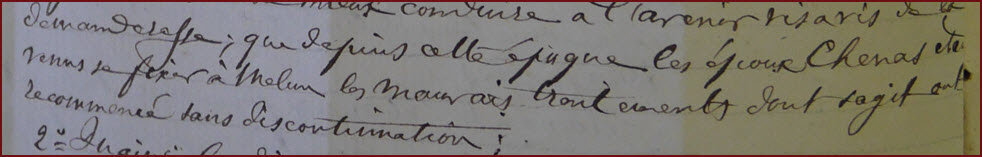 mieux conduire à l'avenir vis à vis de la
demanderesse; que depuis cette époque les époux Chenas étant
venus se fixer à Melun les mauvais traitements dont sagit ont
recommencé sans discontinuation;
2º